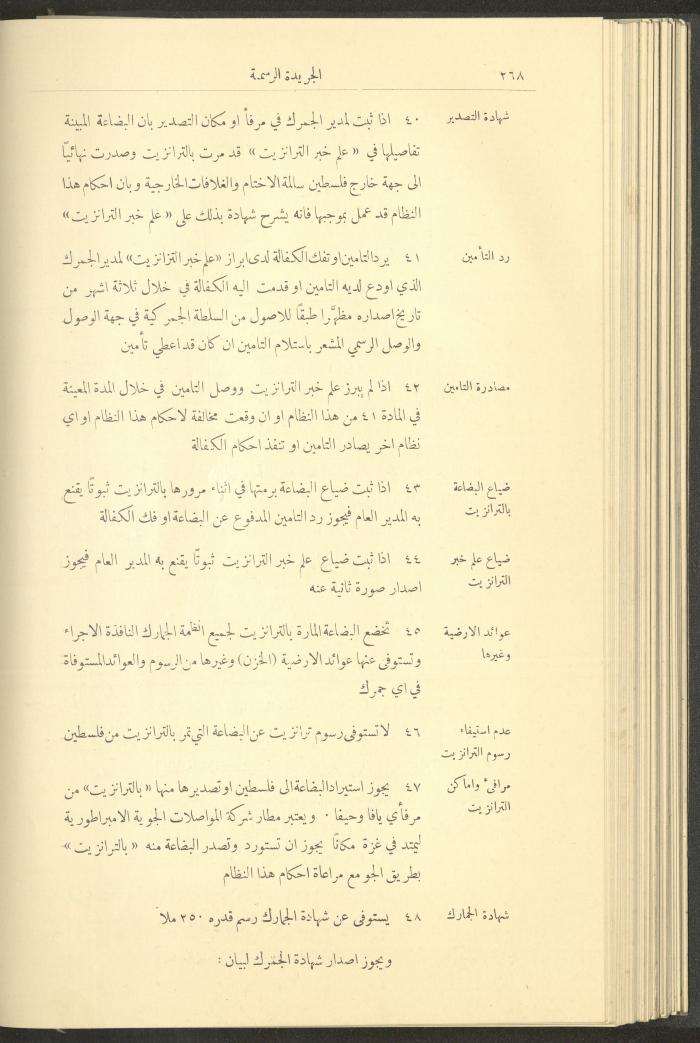 ٢٦٨
الجريدة الرسمية
شهادة التصدير
٤٠ اذا ثبت لمدير الجمرك في مرفأ او مكان التصدير بان البضاعة المبينة
تفاصيلها في « علم خبر الترانزيت » قد مرت بالترانزيت وصدرت نهائيًا
الى جهة خارج فلسطين سالمة الاختام والغلافات الخارجية وبان احكام هذا
النظام قد عمل بموجبها فانه يشرح شهادة بذلك على « علم خبر الترانزيت »
رد التأمين
٤١ يرد التامين او تفك الكفالة لدى ابراز «علم خبر الترانزيت» لمدير الجمرك
الذي اودع لديه التامين او قدمت اليه الكفالة في خلال ثلاثة اشهر من
تاريخ اصداره مظهَّرا طبقًا للاصول من السلطة الجمركية في جهة الوصول
والوصل الرسمي المشعر باستلام التامين ان كان قد اعطي تأمين
مصادرة التامين
٤٢ اذا لم يبرز علم خبر الترانزيت ووصل التامين في خلال المدة المعينة
في المادة ٤١ من هذا النظام او ان وقعت مخالفة لاحكام هذا النظام او اي
نظام اخر يصادر التامين او تنفذ احكام الكفالة
ضياع البضاعة
بالترانزيت
٤٣ اذا ثبت ضياع البضاعة برمتها في اثناء مرورها بالترانزيت ثبوتًا يقنع
به المدير العام فيجوز رد التامين المدفوع عن البضاعة او فك الكفالة
ضياع علم خبر
الترانزيت
٤٤ اذا ثبت ضياع علم خبر الترانزيت ثبوتًا يقنع به المدير العام فيجوز
اصدار صورة ثانية عنه
عوائد الارضية
وغيرها
٤٥ تخضع البضاعة المارة بالترانزيت لجميع انظمة الجمارك النافذة الاجراء
وتستوفى عنها عوائد الارضية (الخزن) وغيرها من الرسوم والعوائد المستوفاة
في اي جمرك
عدم استيفاء
رسوم الترانزيت
٤٦ لا تستوفى رسوم ترانزيت عن البضاعة التي تمر بالترانزيت من فلسطين
مرافئ واماكن
الترانزيت
٤٧ يجوز استيراد البضاعة الى فلسطين او تصديرها منها « بالترانزيت» من
مرفأي يافا وحيفا ٠ ويعتبر مطار شركة المواصلات الجوية الامبراطورية
ليمتد في غزة مكانًا يجوز ان تستورد وتصدر البضاعة منه « بالترانزيت »
بطريق الجو مع مراعاة احكام هذا النظام
شهادة الجمارك
٤٨ يستوفى عن شهادة الجمارك رسم قدره ٢٥٠ ملا
ويجوز اصدار شهادة الجمرك لبيان :